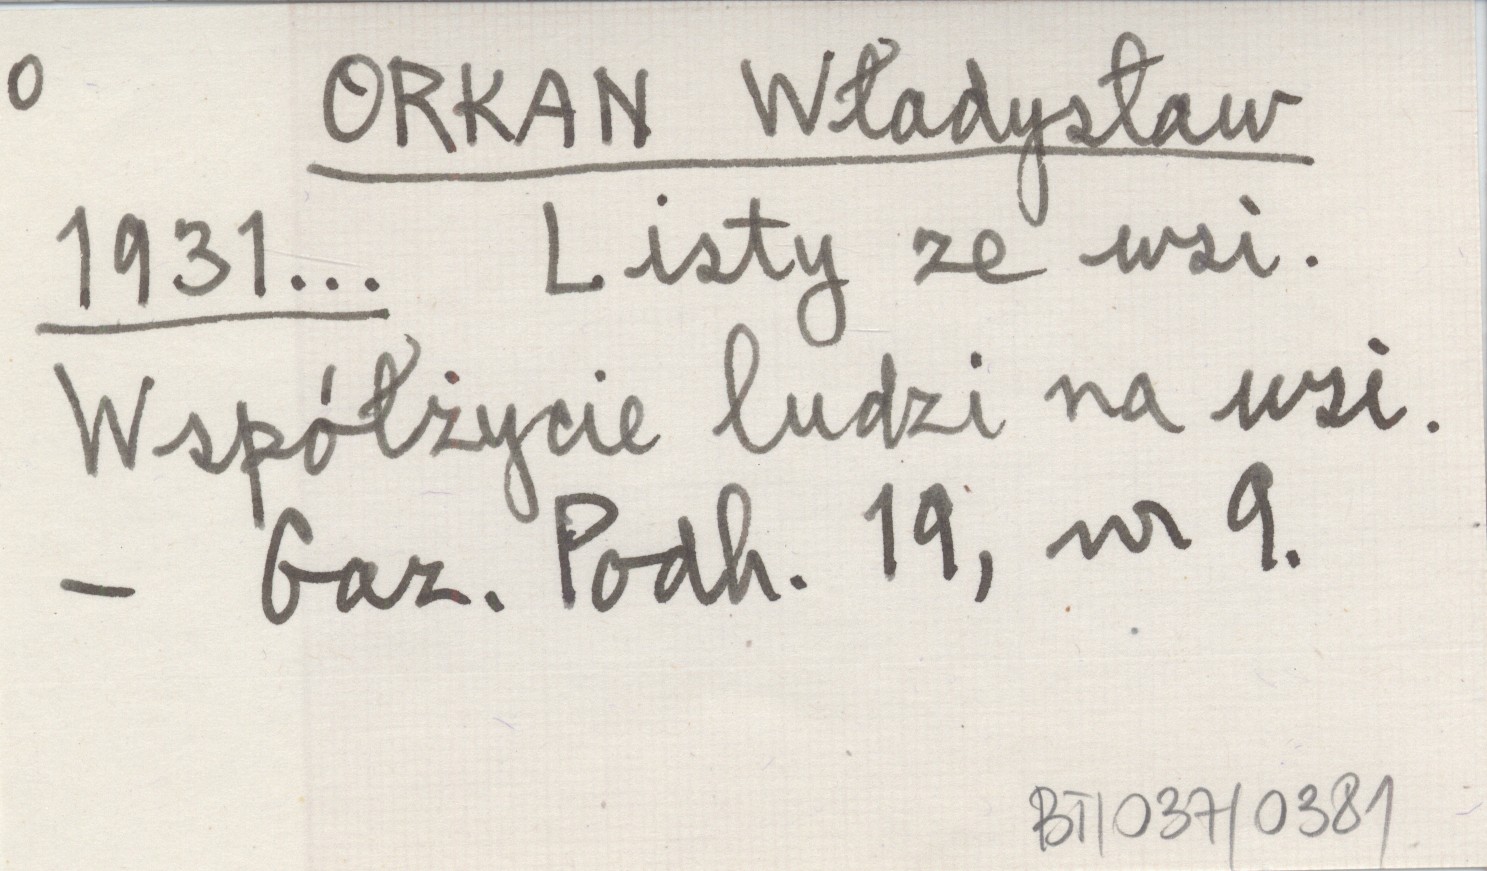 0
ORKAN Władysław
1931... Listy ze wsi.
Współżycie ludzi na wsi.
- Gaz. Podh. 19, nr 9.
BT/037/0381